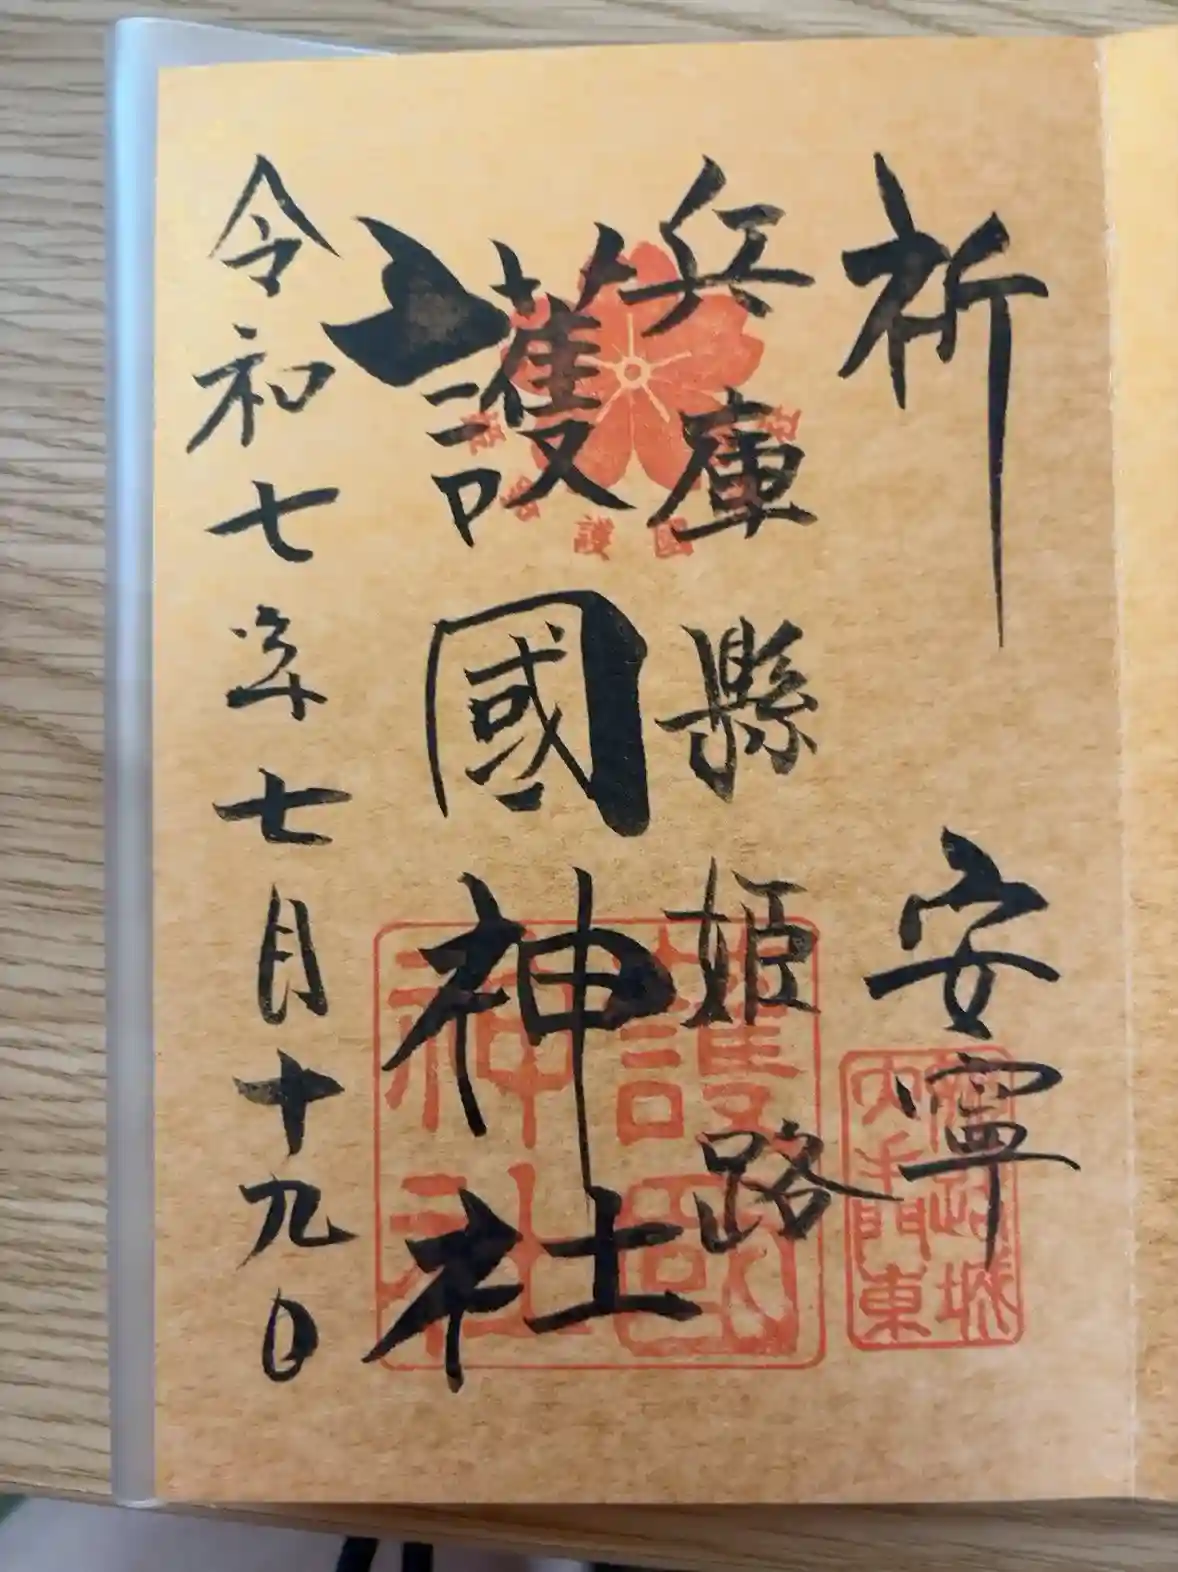 祈 安寧
兵庫縣姫路
護國神社
令和七年七月十九日
護國
神社
姫路城
大手門東